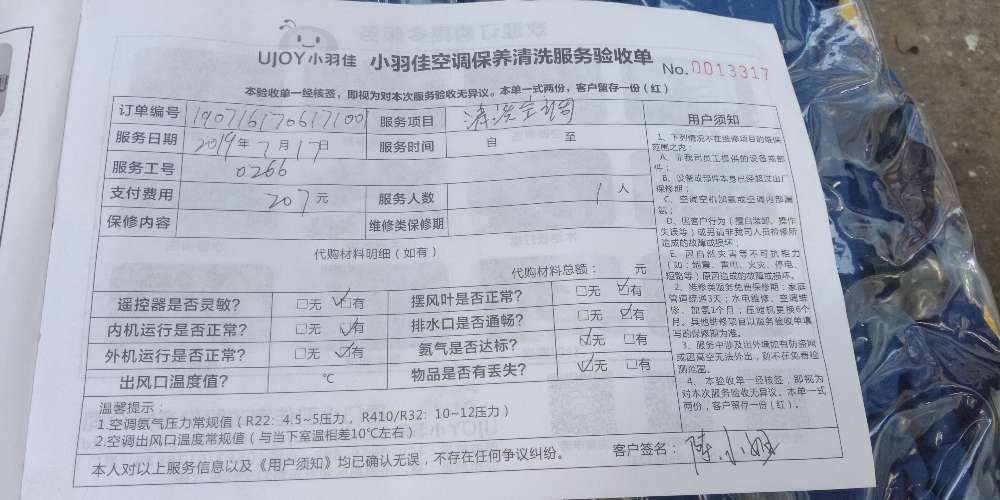 UJOY小羽佳 小羽佳空调保养清洗服务验收单 No.0013317
本验收单一经核签，即视为对本次服务验收无异议。本单一式两份，客户留存一份（红）
订单编号 190716170617100 服务项目 清洗空调
服务日期 2019年7月17日 服务时间 自 至
服务工号 0266
支付费用 207元 服务人数 1人
保修内容 维修类保修期
代购材料明细（如有）
代购材料总额： 元
遥控器是否灵敏？ □无 ☑有 摆风叶是否正常？ □无 ☑有
内机运行是否正常？ □无 ☑有 排水口是否通畅？ □无 ☑有
外机运行是否正常？ □无 ☑有 氨气是否达标？ ☑无 □有
出风口温度值？ ℃ 物品是否有丢失？ ☑无 □有
温馨提示：
1.空调氨气压力常规值（R22：4.5~5压力，R410/R32：10~12压力）
2.空调出风口温度常规值（与当下室温相差10℃左右）
本人对以上服务信息以及《用户须知》均已确认无误，不存在任何争议纠纷。 客户签名：陈小
用户须知
1、下列情况不在维修项目的维保
范围之内：
A、非我司员工提供的设备或部
件；
B、设备或部件本身已经超过出厂
保修期；
C、空调空机加氨或空调内部漏
氨；
D、因客户行为（擅自装卸、操作
失误等）或另请非我司人员检修所
造成的故障或损坏；
E、因自然灾害等不可抗拒力
（如：地震、雷电、火灾、停电、
短路等）原因造成的故障或损坏。
2、维修类服务免费保修期：家庭
管道疏通3天；水电维修、空调维
修、加氨1个月；压缩机更换6个
月。其他维修项目以服务验收单填
写的保修期为准。
3、服务中涉及出外墙如有防盗网
或因高空无法外出，则不在免费检
测范围。
4、本验收单一经核签，即视为
对本次服务验收无异议。本单一式
两份，客户留存一份（红）。